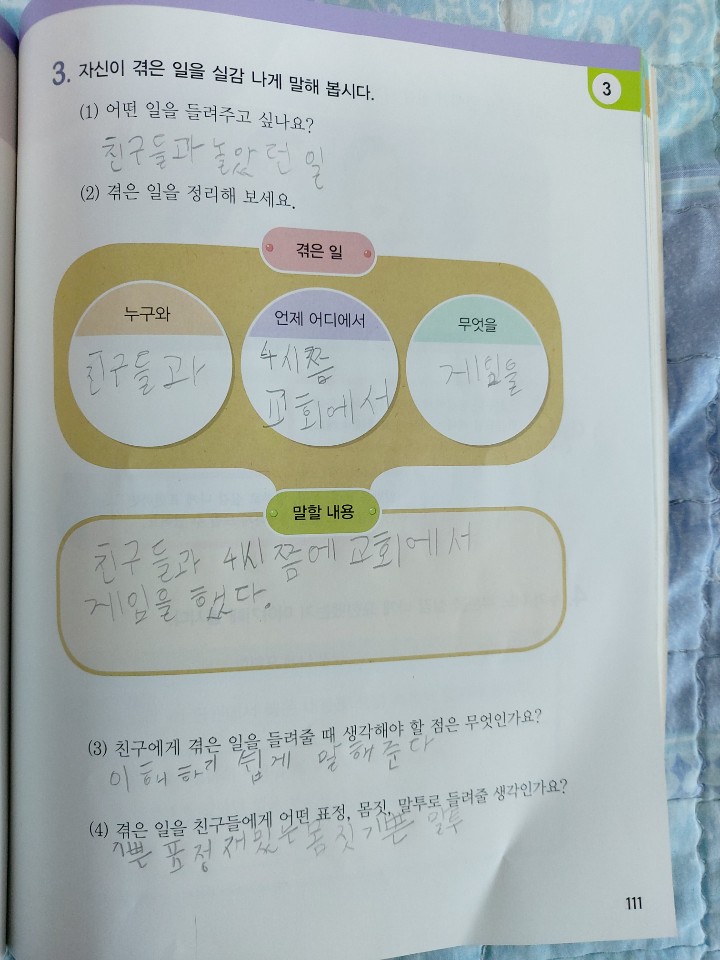 3. 자신이 겪은 일을 실감 나게 말해 봅시다.
3
(1) 어떤 일을 들려주고 싶나요?
친구들과 놀았던 일
(2) 겪은 일을 정리해 보세요.
겪은 일
누구와
친구들과
언제 어디에서
4시쯤
교회에서
무엇을
게임을
말할 내용
친구들과 4시쯤에 교회에서
게임을 했다.
(3) 친구에게 겪은 일을 들려줄 때 생각해야 할 점은 무엇인가요?
이해하기 쉽게 말해준다
(4) 겪은 일을 친구들에게 어떤 표정, 몸짓, 말투로 들려줄 생각인가요?
기쁜 표정 재밌는 몸짓 기쁜 말투
111